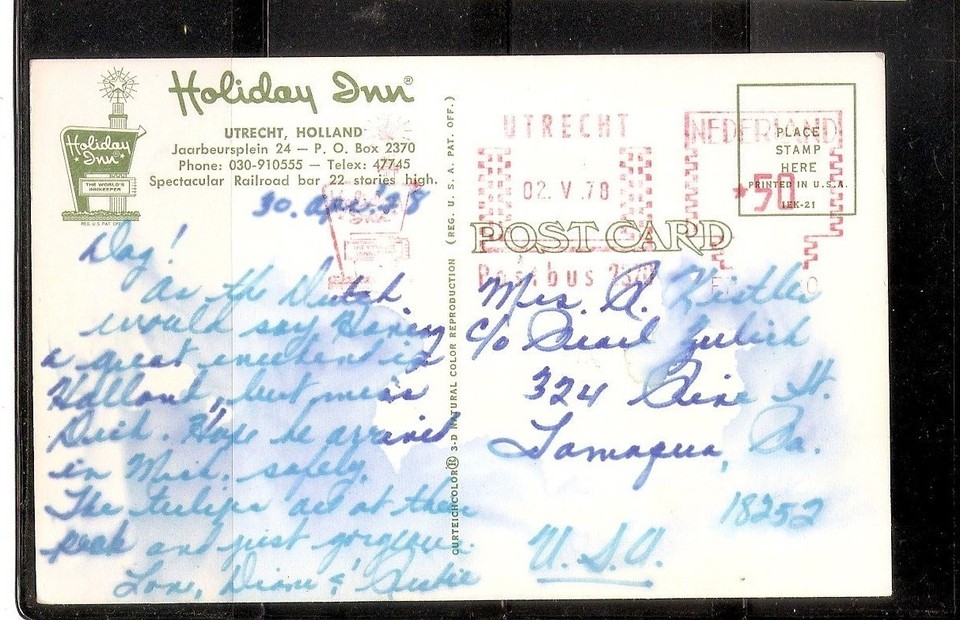 Holiday Inn®
Holiday Inn
THE WORLD'S INNKEEPER
REG. U.S. PAT. OFF.
UTRECHT, HOLLAND
Jaarbeursplein 24 — P. O. Box 2370
Phone: 030-910555 — Telex: 47745
Spectacular Railroad bar 22 stories high.
30. '78
Day!
As the Dutch
would say Having
a great weekend in
Holland, but miss
Dick. Hope he arrived
in Mich. safely.
The tulips are at their
peak and just gorgeous.
Love, Diane &
CURTEICHCOLOR® 3-D NATURAL COLOR REPRODUCTION (REG. U. S. A. PAT. OFF.)
UTRECHT
02.V.78
Postbus
NEDERLAND
*50
PLACE
STAMP
HERE
PRINTED IN U.S.A.
1EK-21
POST CARD
Mrs. A. Kistler
c/o Pearl Zulick
324 Pine St.
Tamaqua, Pa.
18252
U.S.A.